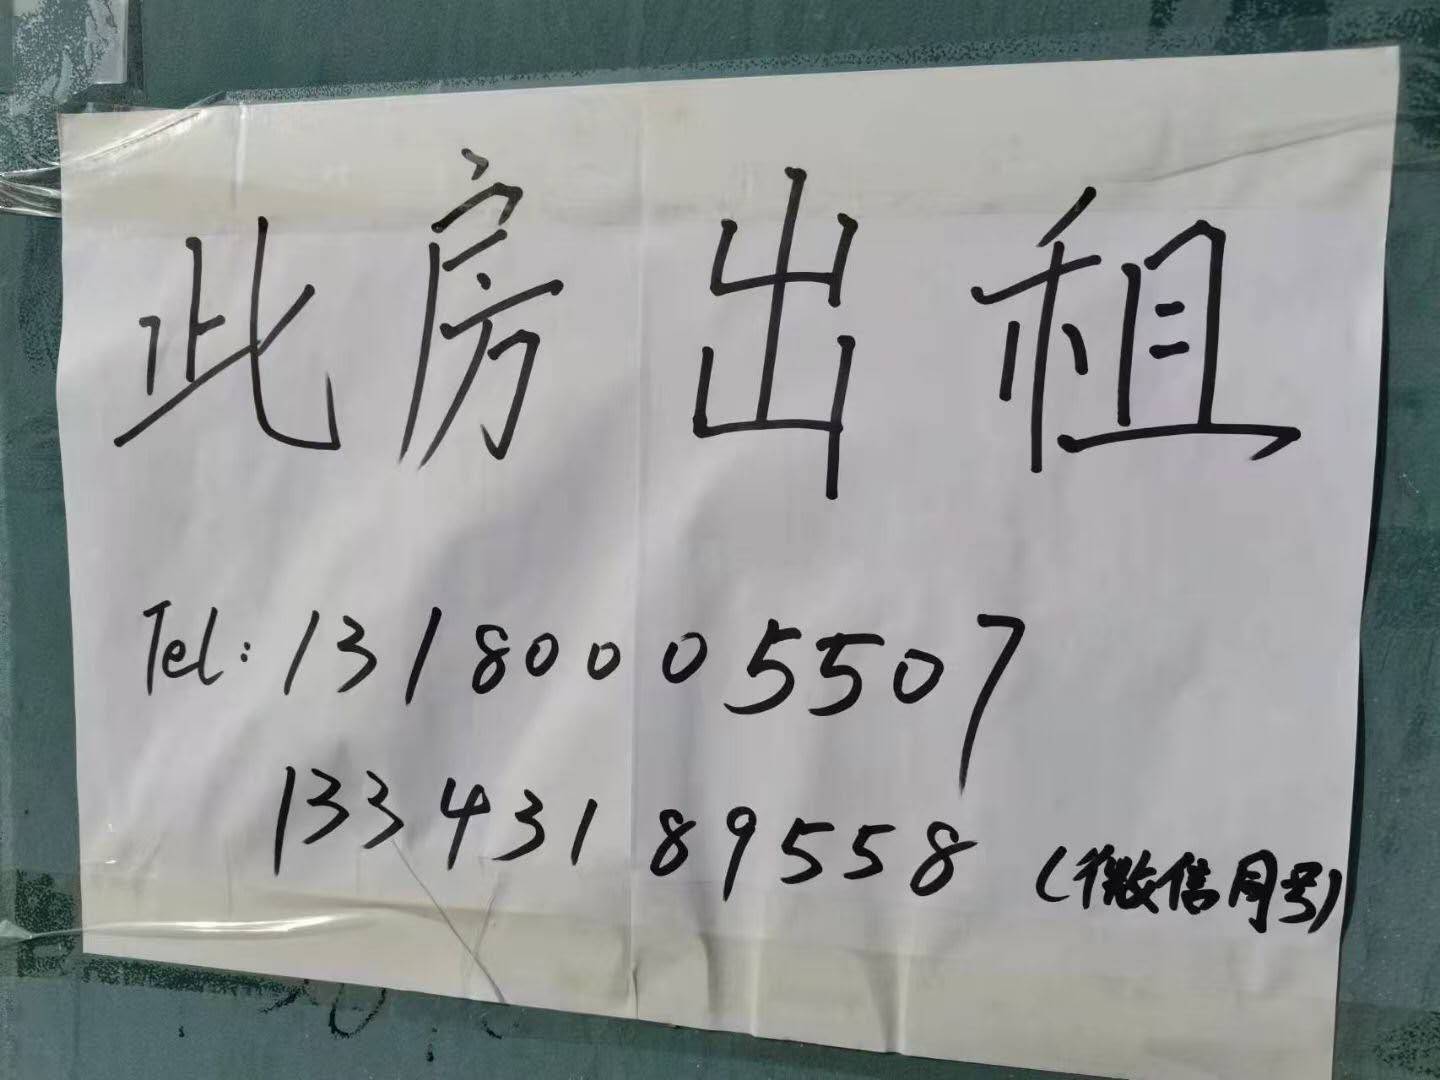 此房出租
Tel: 13180005507
13343189558 (微信同号)